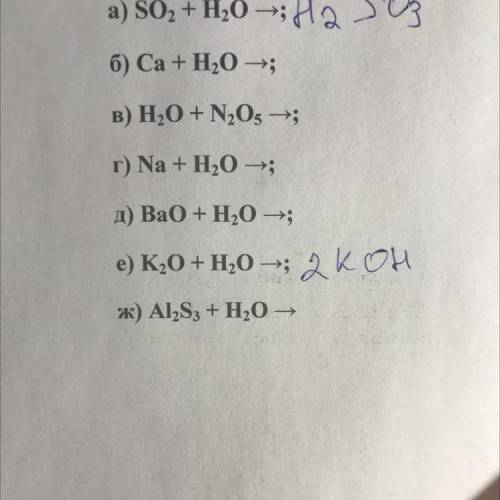 а) SO₂ + H₂O →; H₂SO₃
б) Ca + H₂O →;
в) H₂O + N₂O₅ →;
г) Na + H₂O →;
д) BaO + H₂O →;
е) K₂O + H₂O →; 2KOH
ж) Al₂S₃ + H₂O →